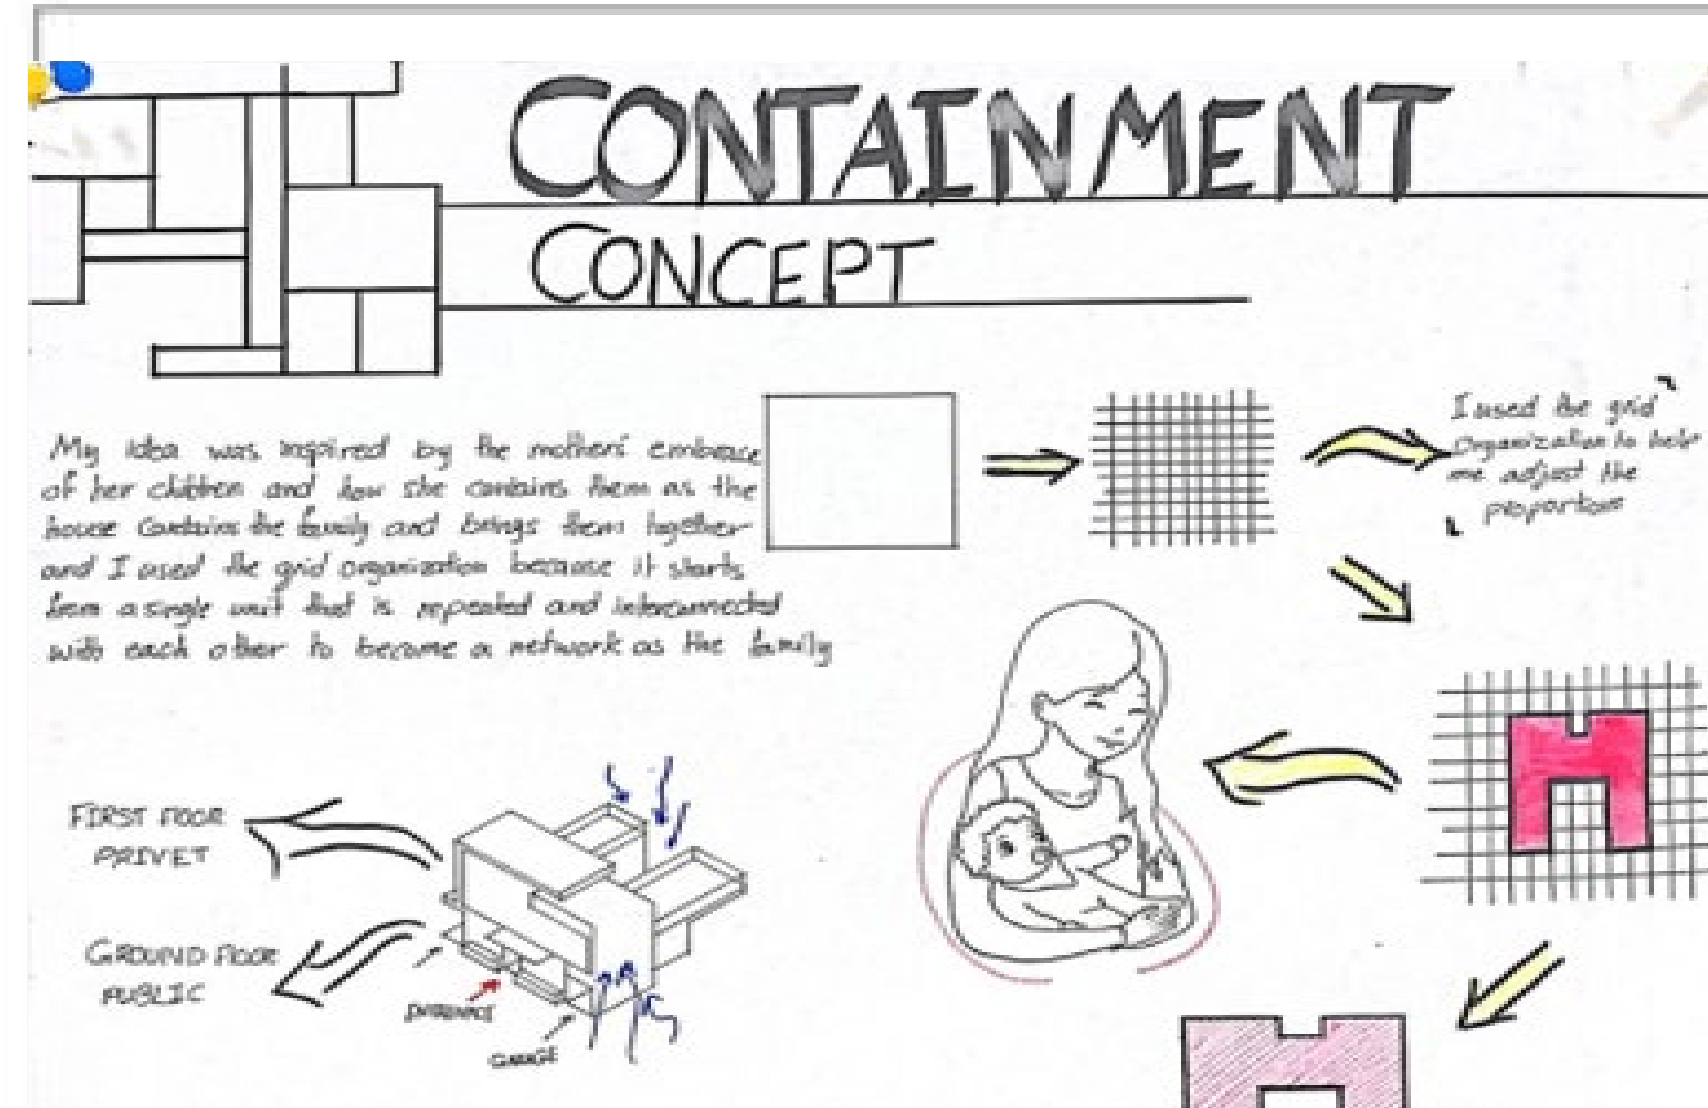 CONTAINMENT
CONCEPT
My idea was inspired by the mothers' embrace
of her children and how she contains them as the
house contains the family and brings them together
and I used the grid organization because it starts
from a single unit that is repeated and interconnected
with each other to become a network as the family
I used the grid
organization to help
me adjust the
proportion
FIRST FLOOR
PRIVET
GROUND FLOOR
PUBLIC
ENTRANCE
GARAGE